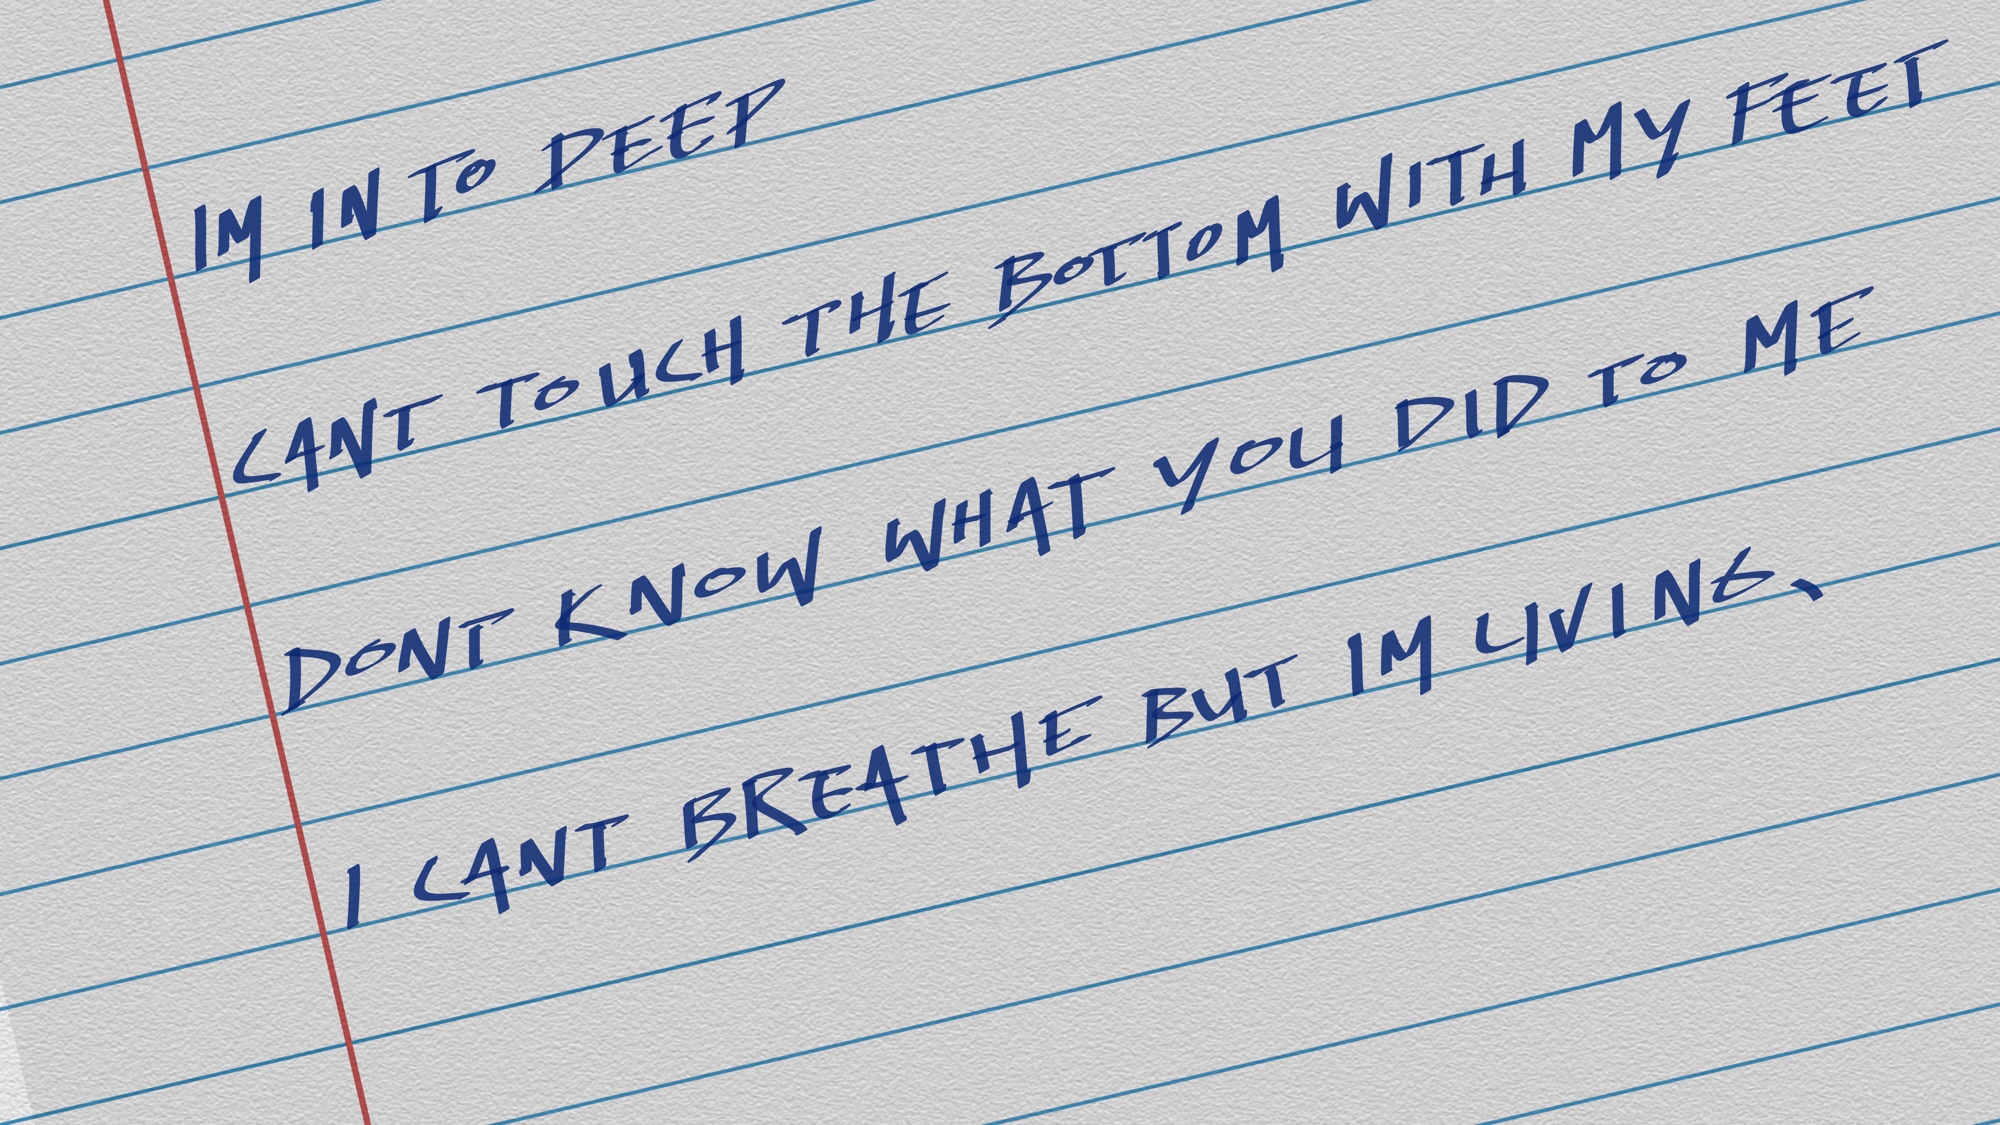 IM IN TO DEEP
CANT TOUCH THE BOTTOM WITH MY FEET
DONT KNOW WHAT YOU DID TO ME
I CANT BREATHE BUT IM LIVING,